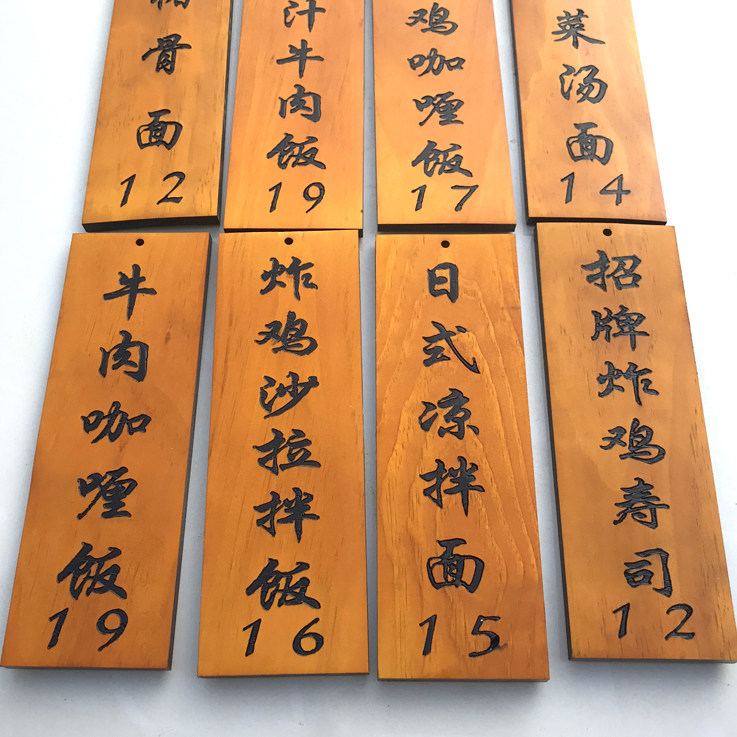 骨面
12
汁牛肉饭
19
鸡咖喱饭
17
菜汤面
14
牛肉咖喱饭
19
炸鸡沙拉拌饭
16
日式凉拌面
15
招牌炸鸡寿司
12